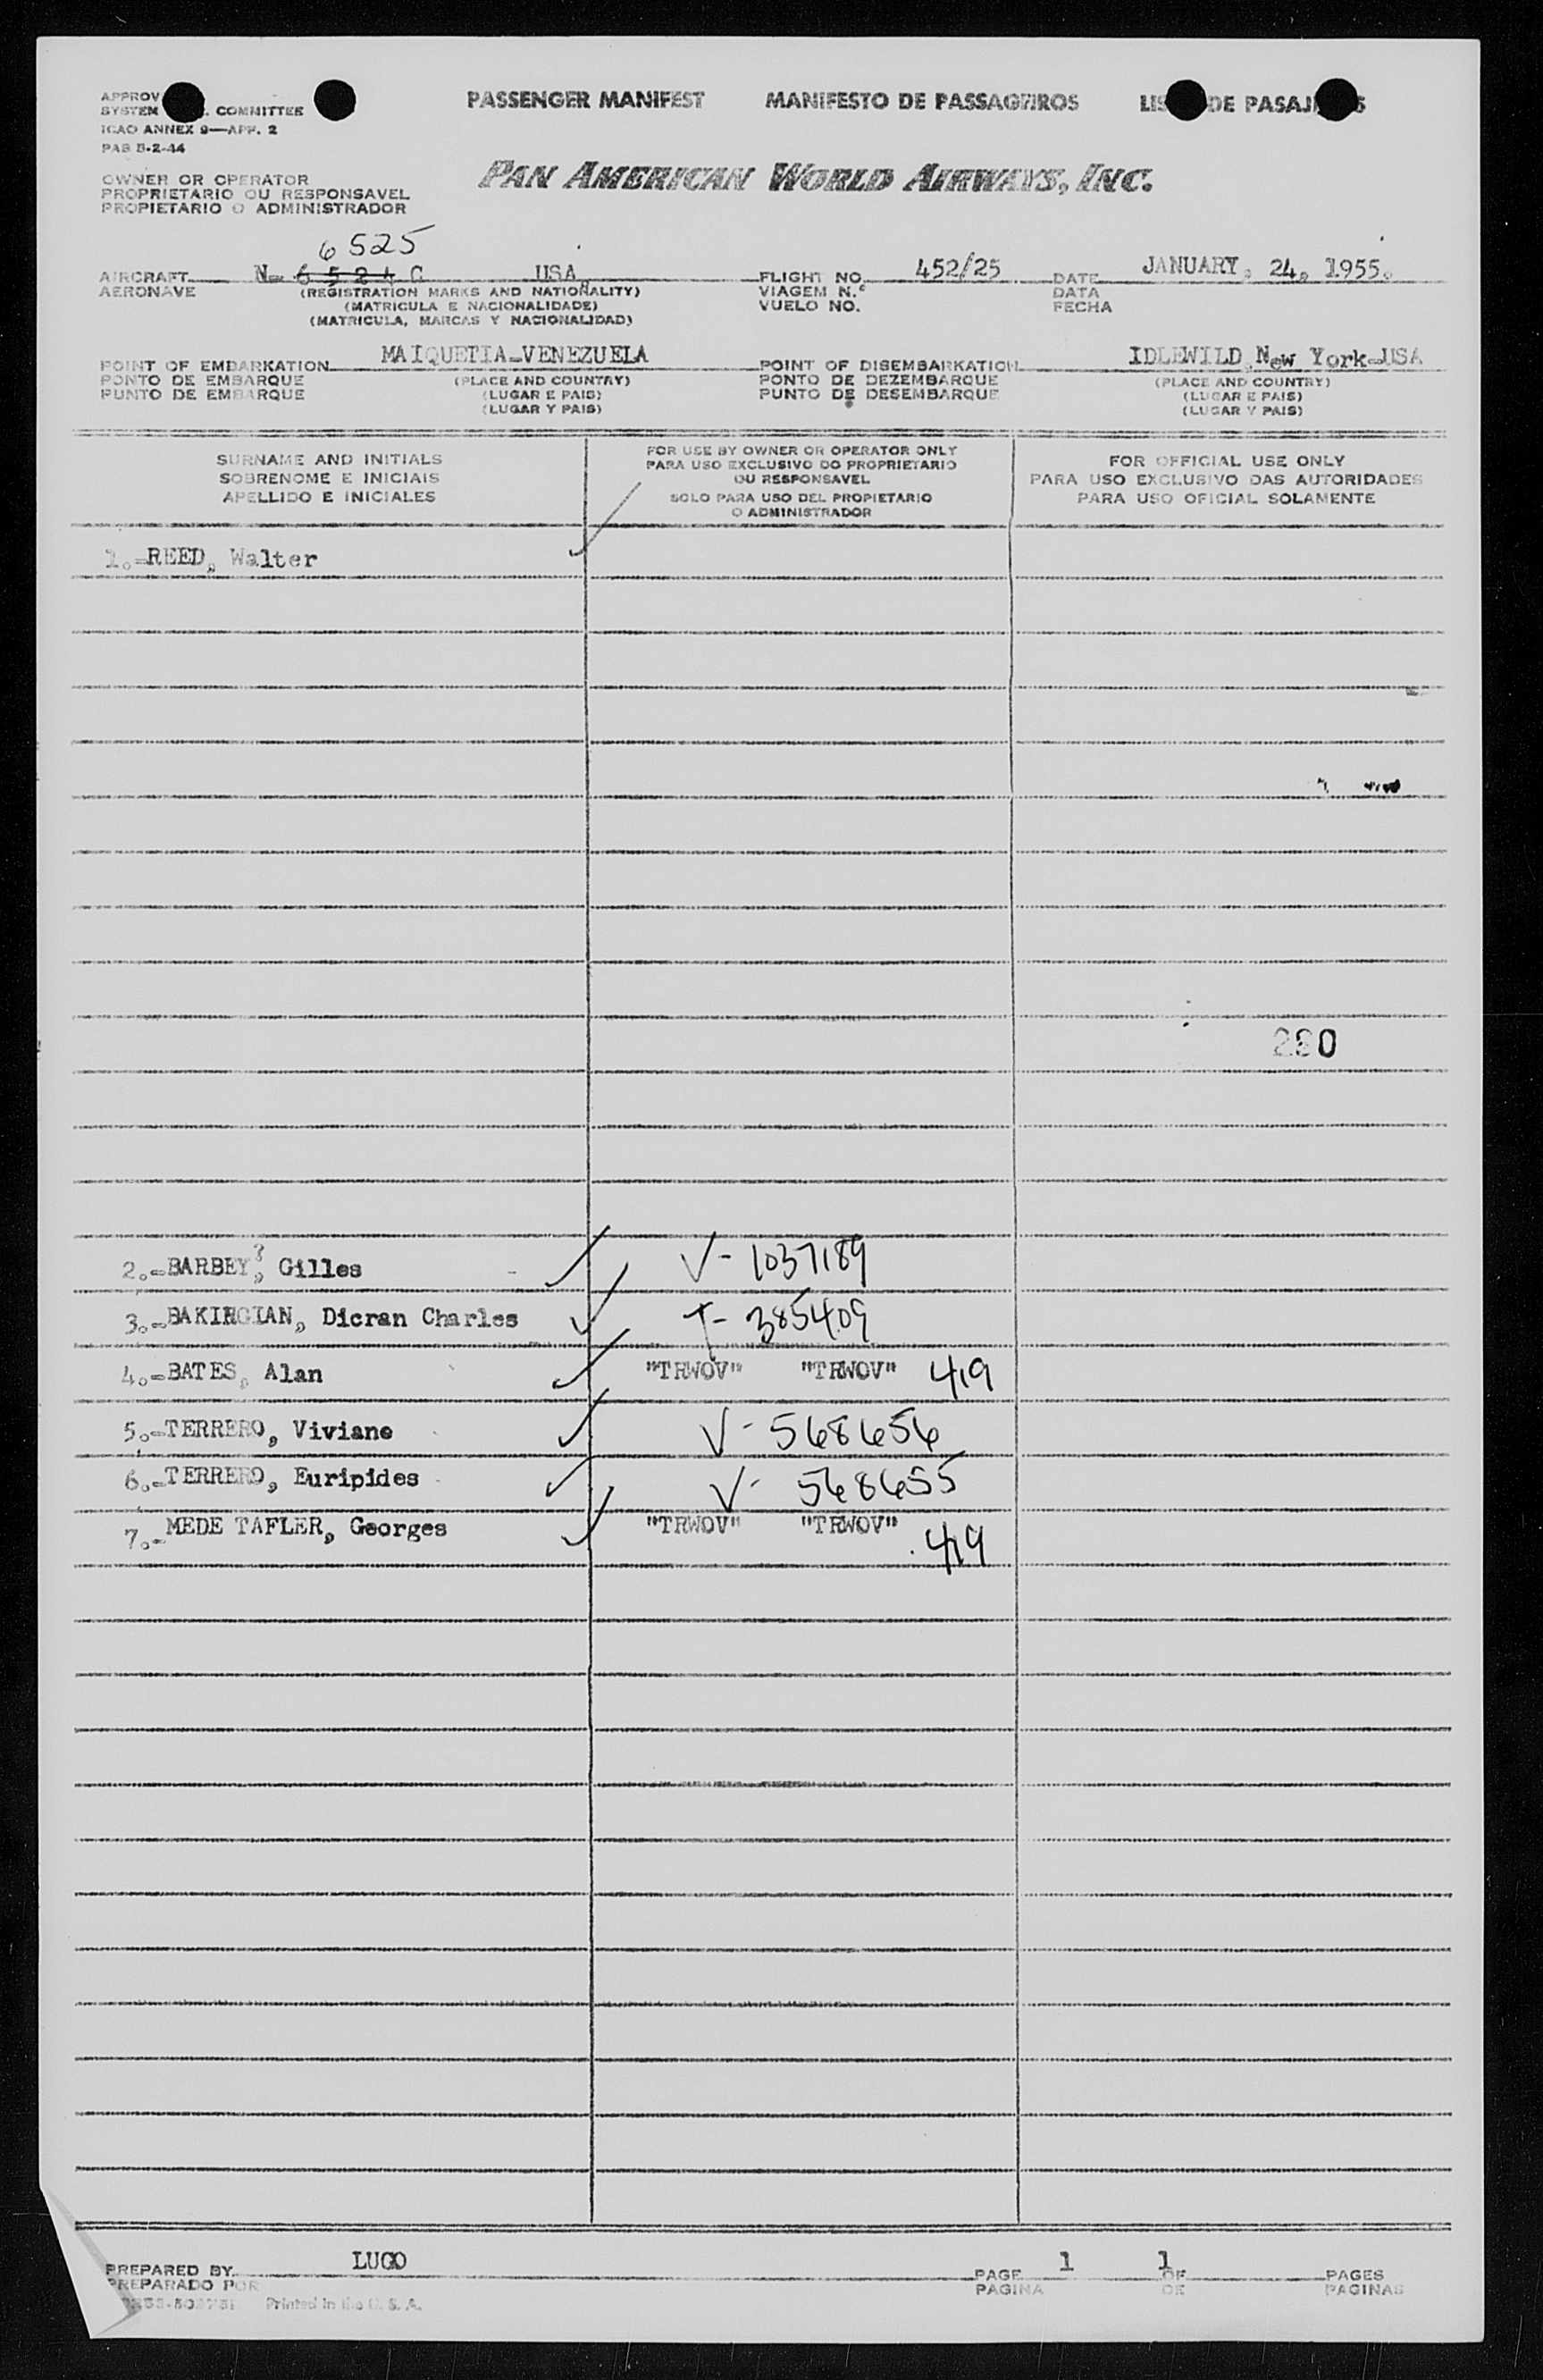 PASSENGER MANIFEST MANIFESTO DE PASSAGEIROS DE
APPROV
SYSTEM COMMITTEE
ICAO ANNEX 9—APP. 2
PAB 5-2-44
PAN AMERICAN WORLD AIRWAYS, INC.
OWNER OR OPERATOR
PROPRIETARIO OU RESPONSAVEL
PROPIETARIO O ADMINISTRADOR
6525
AIRCRAFT N- 6524 C USA FLIGHT NO. 452/25 DATE JANUARY, 24, 1955.
AERONAVE (REGISTRATION MARKS AND NATIONALITY) VIAGEM N.º DATA
(MATRICULA E NACIONALIDADE) VUELO NO. FECHA
(MATRICULA, MARCAS Y NACIONALIDAD)
POINT OF EMBARKATION MAIQUETIA-VENEZUELA POINT OF DISEMBARKATION IDLEWILD, New York-USA
PONTO DE EMBARQUE (PLACE AND COUNTRY) PONTO DE DEZEMBARQUE (PLACE AND COUNTRY)
PUNTO DE EMBARQUE (LUGAR E PAIS) PUNTO DE DESEMBARQUE (LUGAR E PAIS)
(LUGAR Y PAIS) (LUGAR Y PAIS)
SURNAME AND INITIALS
SOBRENOME E INICIAIS
APELLIDO E INICIALES
FOR USE BY OWNER OR OPERATOR ONLY
PARA USO EXCLUSIVO DO PROPRIETARIO
OU RESPONSAVEL
SOLO PARA USO DEL PROPIETARIO
O ADMINISTRADOR
FOR OFFICIAL USE ONLY
PARA USO EXCLUSIVO DAS AUTORIDADES
PARA USO OFICIAL SOLAMENTE
1.-REED, Walter
2.-BARBEY?, Gilles V- 1037189
3.-BAKIRGIAN, Dicran Charles T- 385409
4.-BATES, Alan "TRWOV" "TRWOV" 419
5.-TERRERO, Viviane V- 568656
6.-TERRERO, Euripides V- 568655
7.-MEDE TAFLER, Georges "TRWOV" "TRWOV" 419
PREPARED BY LUGO PAGE 1 OF 1 PAGES
PREPARADO POR PAGINA DE PAGINAS
Printed in the U. S. A.